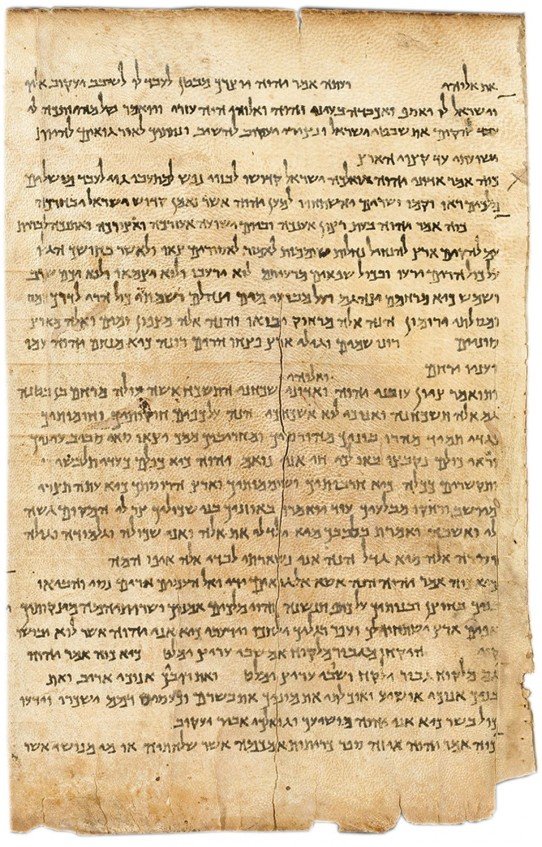 את אלוהי ועתה אמר יהוה יוצרך מבטן לעבד לו לשובב יעקוב אליו
וישראל לו יאסף ואכבדה בעיני יהוה ואלוהי היה עזרי ויואמר הנקל מהיותכה לי
עבד להקים את שבטי ישראל ונצירי יעקוב להשיב ונתתיך לאור גואים להיות
ישועתי עד קצוי הארץ
כוה אמר אדוני יהוה גואלכה ישראל קדושו לבזוי נפש למתעבי גוי לעבד מושלים
מלכים ראו וקמו ושרים והשתחוו למען יהוה אשר נאמן קדוש ישראל יבחרכה
כוה אמר יהוה בעת רצון אענכה וביום ישועה אעזרכה ואצורכה ואתנכה לברית
עם להקים ארץ להנחיל נחלות שוממות לאמור לאסורים צאו ולאשר בחושך הגלו
על כול הרים ירעו ובכול שפאים מרעיתם לוא ירעבו ולוא יצמאו ולוא יכם שרב
ושמש כיא מרחמם ינהגם ועל מבועי מים ינהלם ושמתי כול הרי לדרך
ומסלותי ירומון הנה אלה מרחוק יבואו והנה אלה מצפון ומים ואלה מארץ
סונים רונו שמים וגילי ארץ פצחו הרים רנה כיא מנחם יהוה עמו
ועניו ירחם
ואלוהי
ותואמר ציון עזבני יהוה ואדוני שכחני התשכח אשה עולה מרחם בן בטנה
גם אלה תשכחנה ואנוכי לוא אשכחכי הנה על כפים חקותיך וחומותיך
נגדי תמיד מהרו בוניך מהורסיך ומחריביך ממך יצאו שאי סביב עיניך
וראי כולם נקבצו באו לך חי אני נואם יהוה כיא כולם כעדי תלבשי
ותקשרים ככלה כיא חרבותיך ושוממותיך וארץ הריסותיך כיא עתה תצרי
מיושב ורחקו מבלעיך עוד יואמרו באוזניך בני שכוליך צר לי המקום גשה
לי ואשבה ואמרת בלבבך מיא ילד לי את אלה ואני שכולה וגלמודה גולה
וסרה אלה מיא גדל הנה אני נשארתי לבדי אלה איפו המה
כיא כוה אמר יהוה הנה אשא אל גואים ידי ואל העמים ארים נסי והביאו
בניך בחוצן ובנותיך על כתף תנשינה והיו מלכים אמניך ושרותיהמה מיניקותיך
אפים ארץ ישתחוו לך ועפר רגליך ילחכו וידעת כיא אני יהוה אשר לוא יבושו
קוי היקחו מגבור מלקוח אם שבי עריץ ימלט כיא כוה אמר יהוה
גם מלקוח גבור ילקח ושבי עריץ ימלט ואת ריבך אנוכי אריב ואת
בניך אנוכי אושיע ואוכלתי את מוניך את בשרם וכעסיס דמם ישכרו וידעו
כול בשר כיא אני יהוה מושיעך וגואלך אביר יעקוב
כוה אמר יהוה אי זה ספר כריתות אמכמה אשר שלחתיה או מי מנושי אשר